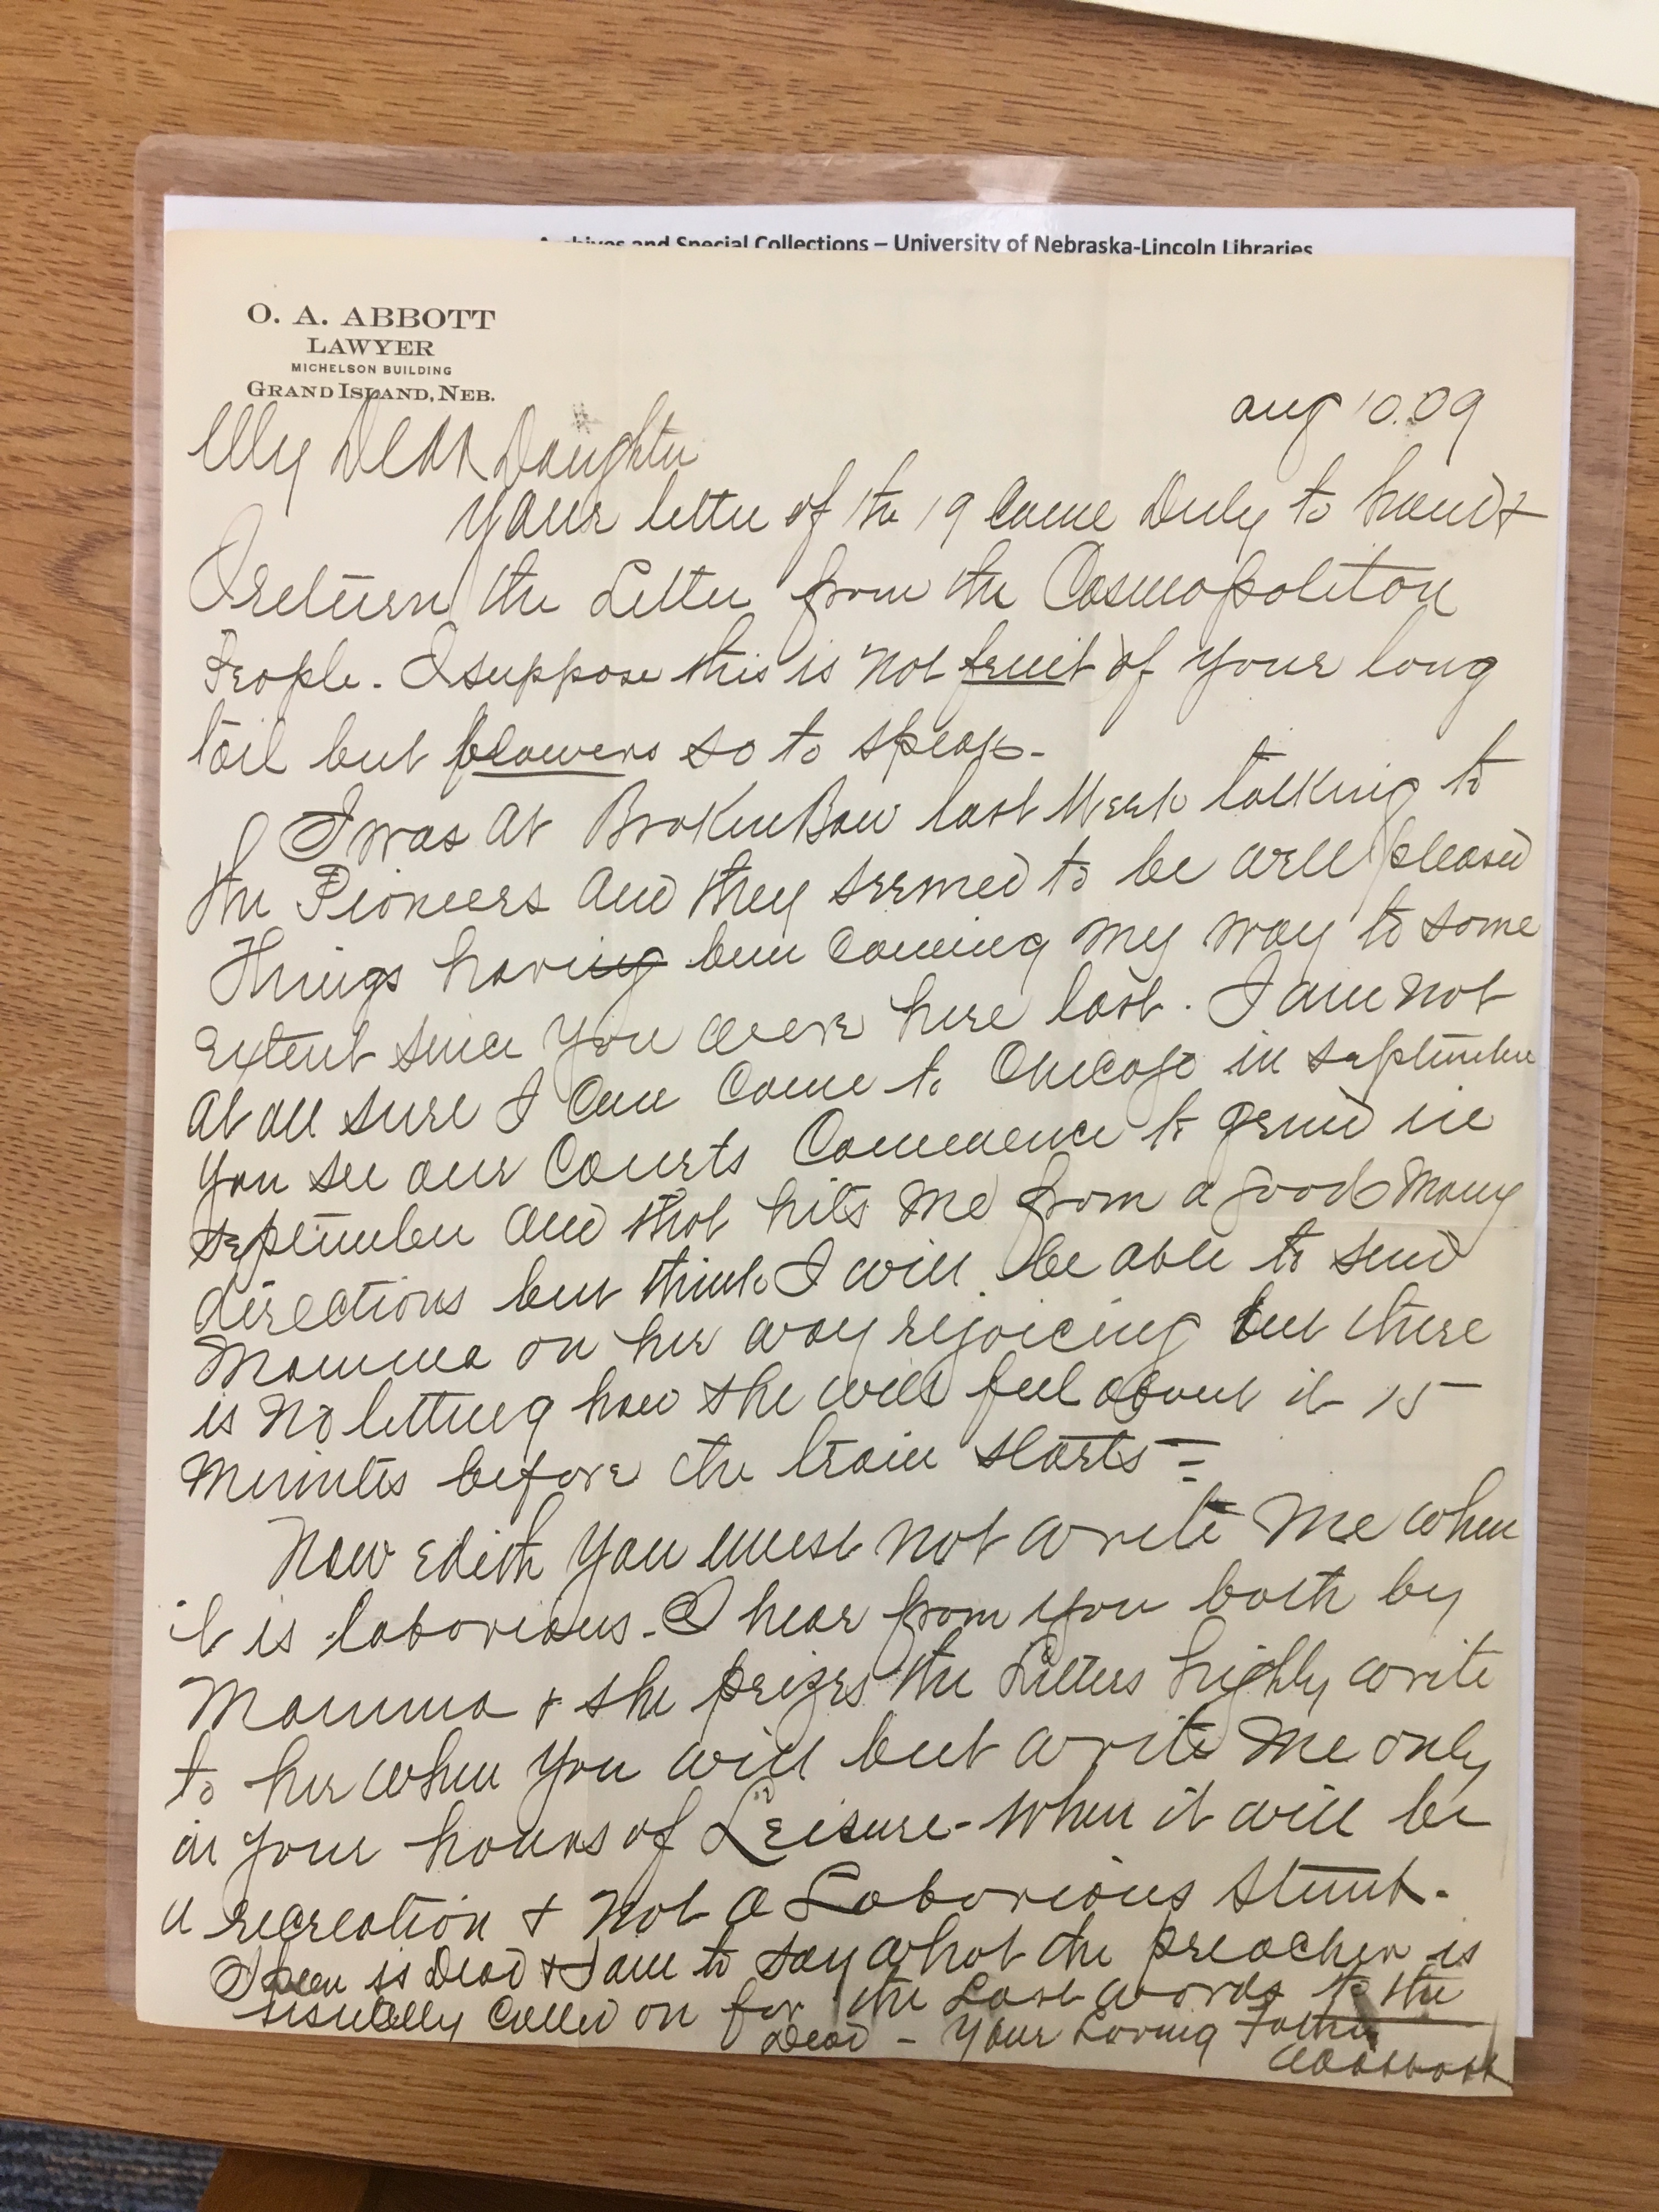 Archives and Special Collections – University of Nebraska-Lincoln Libraries
O. A. ABBOTT
LAWYER
MICHELSON BUILDING
GRAND ISLAND, NEB.
aug 10.09
My Dear Daughter
Your letter of the 19 came Duly to hand &
I return the Letter from the Cosmopolitan
People. I suppose this is not fruit of your long
toil but flowers so to speak-
I was at Broken Bow last Week talking to
the Pioneers and they seemed to be well pleased
Things having been coming my way to some
extent since you were here last. I am not
at all sure I can come to Chicago in september
You see our Courts Commence to grind in
september and that hits me from a good many
directions but think I will be able to send
Mamma on her way rejoicing but there
is no letting how she will feel about it 15
Minutes before the train starts =
Now Edith you must not write me when
it is laborious. I hear from you both by
Mamma & she prizes the Letters highly write
to her when you will but write me only
in your hours of Leisure - when it will be
a recreation & not a Laborious stunt.
is Dead & I am to say what the preacher is
usually called on for the Last words to the
Dead - Your Loving Father
OAAbbott